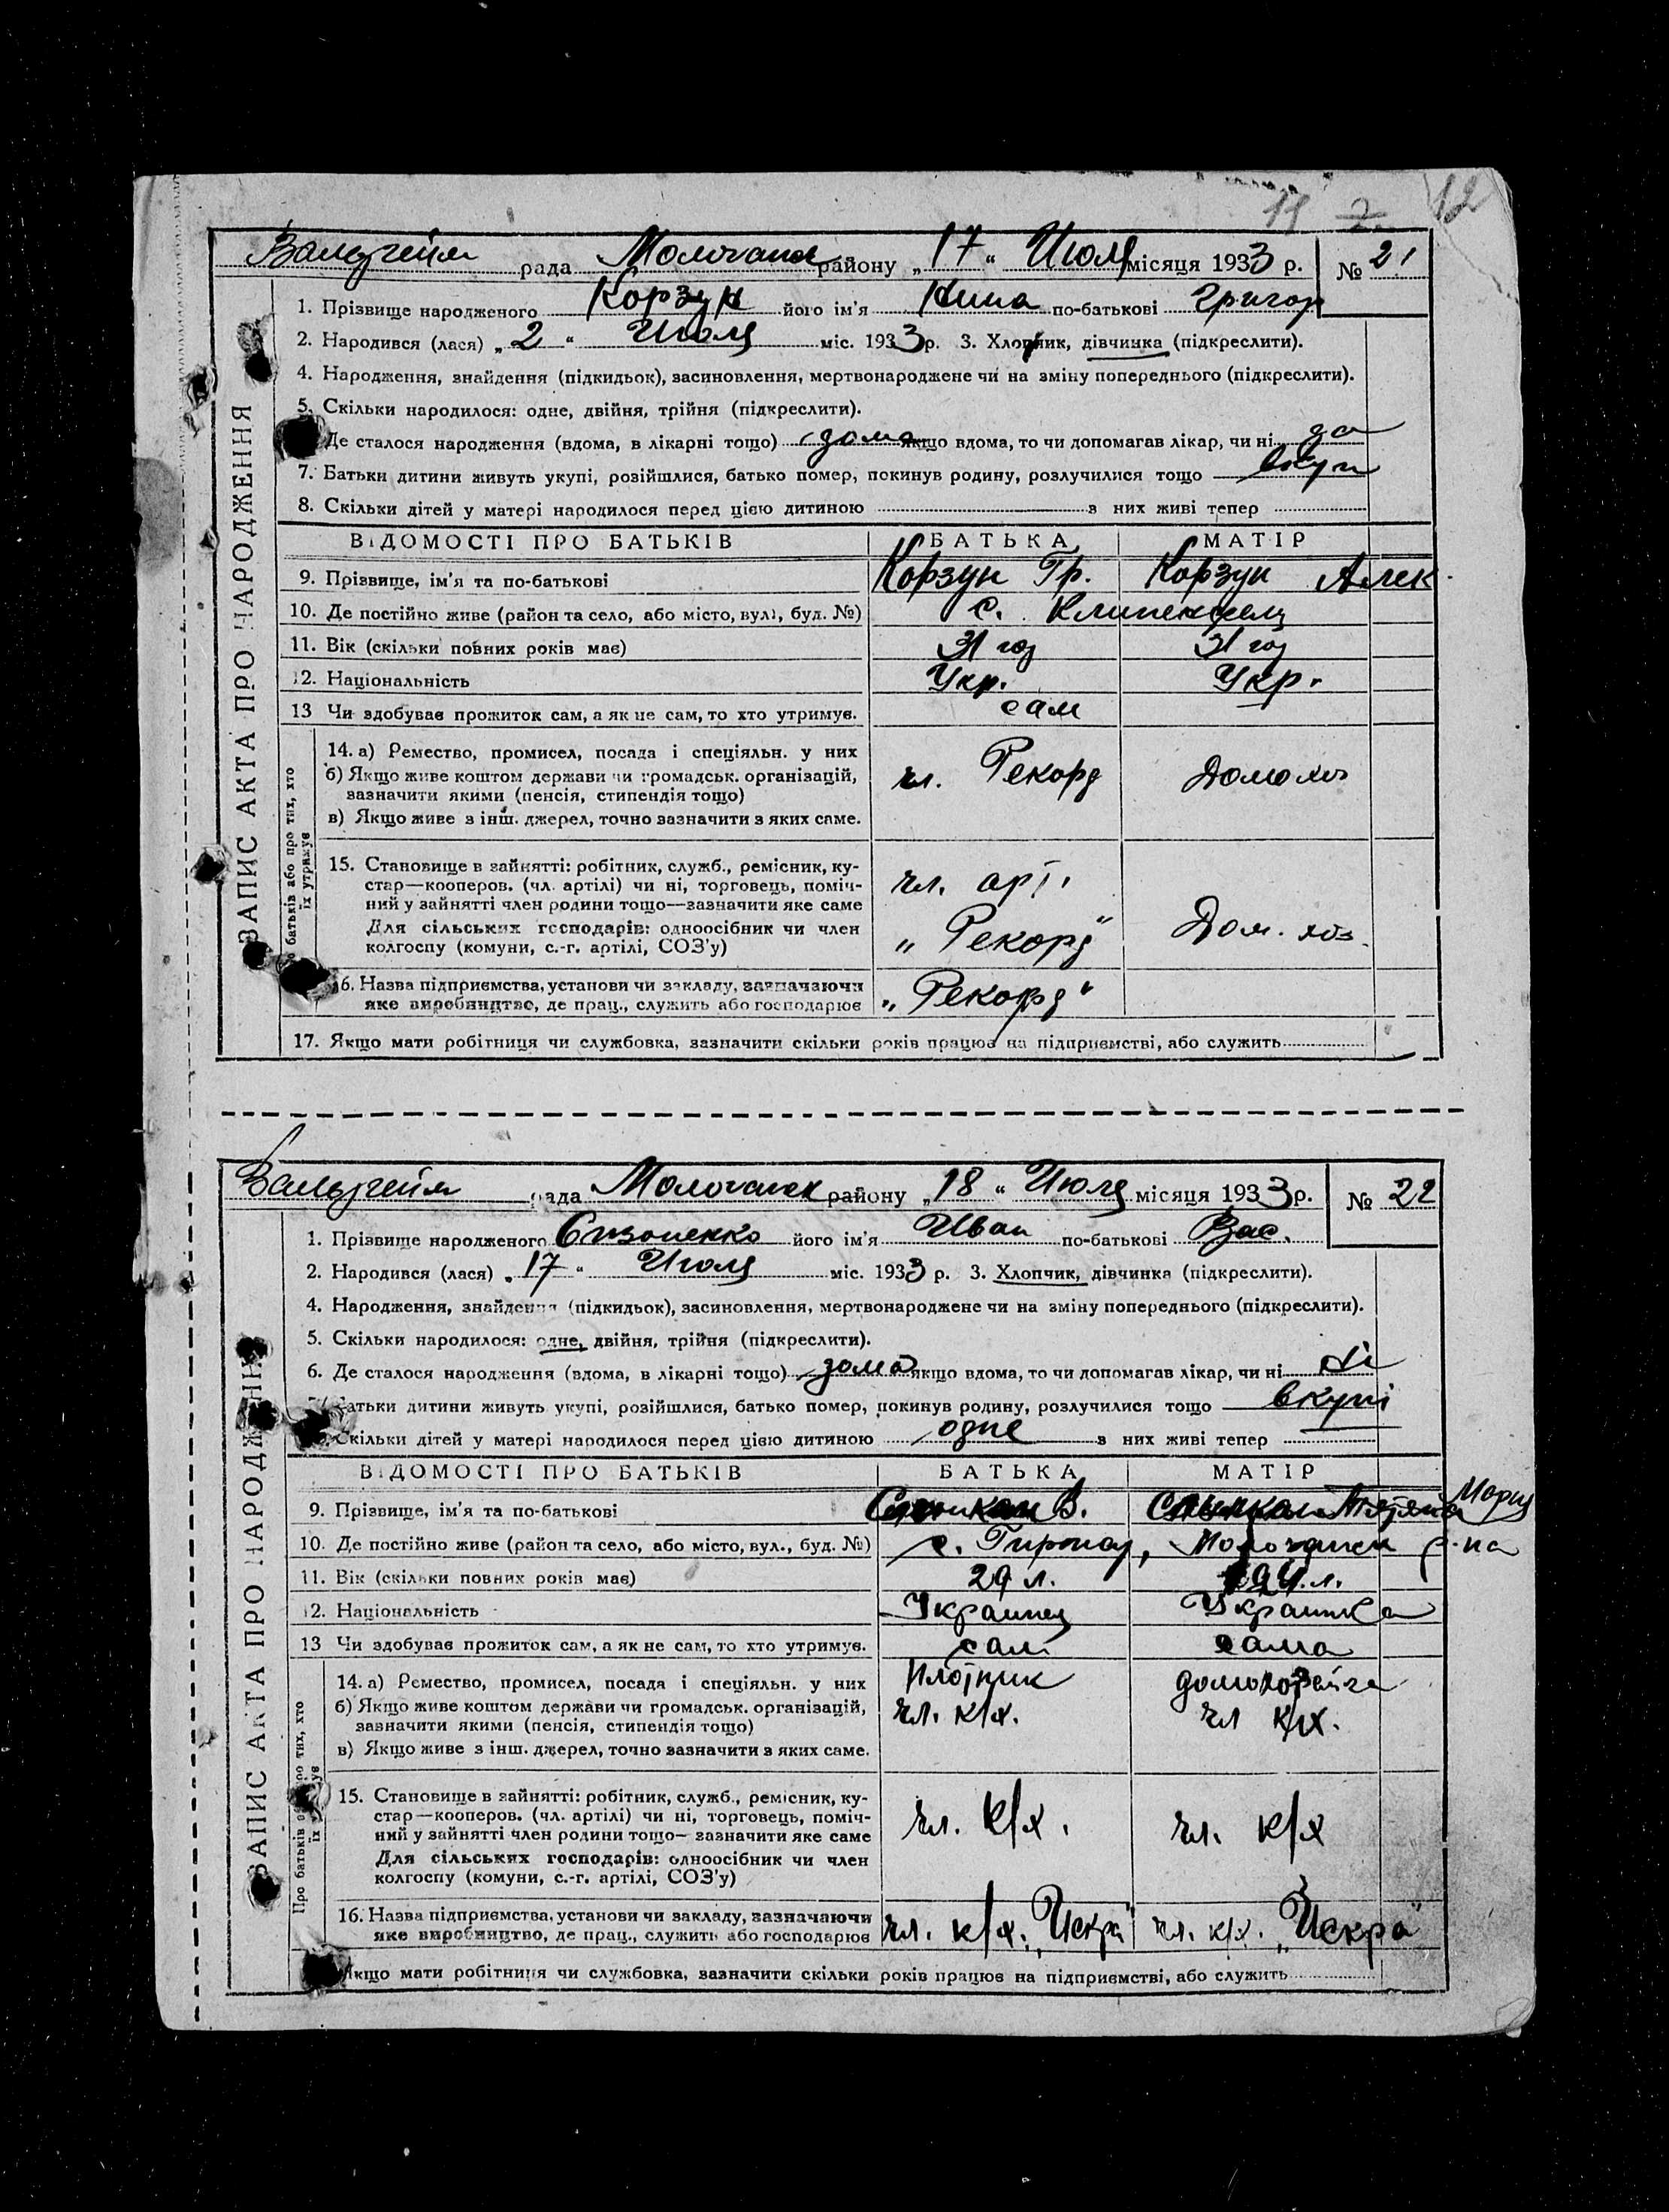 11 7 12
Вальдгейм рада Молочанск району „17“ Июля місяця 1933 р. № 21
1. Прізвище народженого Корзун його ім'я Нина по-батькові Григор
2. Народився (лася) „2“ Июля міс. 1933 р. 3. Хлопчик, дівчинка (підкреслити).
4. Народження, знайдення (підкидьок), засиновлення, мертвонароджене чи на зміну попереднього (підкреслити).
5. Скільки народилося: одне, двійня, трійня (підкреслити).
Де сталося народження (вдома, в лікарні тощо) дома якщо вдома, то чи допомагав лікар, чи ні да
7. Батьки дитини живуть укупі, розійшлися, батько помер, покинув родину, розлучилися тощо вкупі
8. Скільки дітей у матері народилося перед цією дитиною з них живі тепер
ВІДОМОСТІ ПРО БАТЬКІВ БАТЬКА МАТІР
9. Прізвище, ім'я та по-батькові Корзун Гр. Корзун Алек
10. Де постійно живе (район та село, або місто, вул., буд. №) с.
11. Вік (скільки повних років має) 31 год 31 год
12. Національність Укр. Укр.
13 Чи здобуває прожиток сам, а як не сам, то хто утримує. сам
14. а) Ремество, промисел, посада і спеціяльн. у них
б) Якщо живе коштом держави чи громадськ. організацій,
зазначити якими (пенсія, стипендія тощо) чл. Рекорд Домохоз
в) Якщо живе з інш. джерел, точно зазначити з яких саме.
15. Становище в зайнятті: робітник, служб., ремісник, ку-
стар—кооперов. (чл. артілі) чи ні, торговець, поміч- чл. арт.
ний у зайнятті член родини тощо—зазначити яке саме
Для сільських господарів: одноосібник чи член „Рекорд“ Дом. хоз.
колгоспу (комуни, с.-г. артілі, СОЗ'у)
16. Назва підприємства, установи чи закладу, зазначаючи
яке виробництво, де прац., служить або господарює „Рекорд“
17. Якщо мати робітниця чи службовка, зазначити скільки років працює на підприємстві, або служить
ЗАПИС АКТА ПРО НАРОДЖЕННЯ
батьків або про тих, хто
їх утримує
Вальдгейм рада Молочанск району „18“ Июля місяця 1933 р. № 22
1. Прізвище народженого Сизоненко його ім'я Иван по-батькові Вас.
2. Народився (лася) „17“ Июля міс. 1933 р. 3. Хлопчик, дівчинка (підкреслити).
4. Народження, знайдення (підкидьок), засиновлення, мертвонароджене чи на зміну попереднього (підкреслити).
5. Скільки народилося: одне, двійня, трійня (підкреслити).
6. Де сталося народження (вдома, в лікарні тощо) дома якщо вдома, то чи допомагав лікар, чи ні ні
Батьки дитини живуть укупі, розійшлися, батько помер, покинув родину, розлучилися тощо вкупі
Скільки дітей у матері народилося перед цією дитиною одне з них живі тепер
ВІДОМОСТІ ПРО БАТЬКІВ БАТЬКА МАТІР
9. Прізвище, ім'я та по-батькові В.
10. Де постійно живе (район та село, або місто, вул., буд. №) с. Гирнау, Молочанск р-на
11. Вік (скільки повних років має) 29 л. 24 л.
12. Національність Украинец Украинка
13 Чи здобуває прожиток сам, а як не сам, то хто утримує. сам сама
14. а) Ремество, промисел, посада і спеціяльн. у них Плотник домохозяйка
б) Якщо живе коштом держави чи громадськ. організацій, чл. к/х. чл к/х.
зазначити якими (пенсія, стипендія тощо)
в) Якщо живе з інш. джерел, точно зазначити з яких саме.
15. Становище в зайнятті: робітник, служб., ремісник, ку-
стар—кооперов. (чл. артілі) чи ні, торговець, поміч- чл. к/х. чл. к/х
ний у зайнятті член родини тощо— зазначити яке саме
Для сільських господарів: одноосібник чи член
колгоспу (комуни, с.-г. артілі, СОЗ'у)
16. Назва підприємства, установи чи закладу, зазначаючи
яке виробництво, де прац., служить або господарює чл. к/х. „Искра“ чл. к/х. „Искра“
Якщо мати робітниця чи службовка, зазначити скільки років працює на підприємстві, або служить
ЗАПИС АКТА ПРО НАРОДЖЕННЯ
Про батьків тих, хто
їх